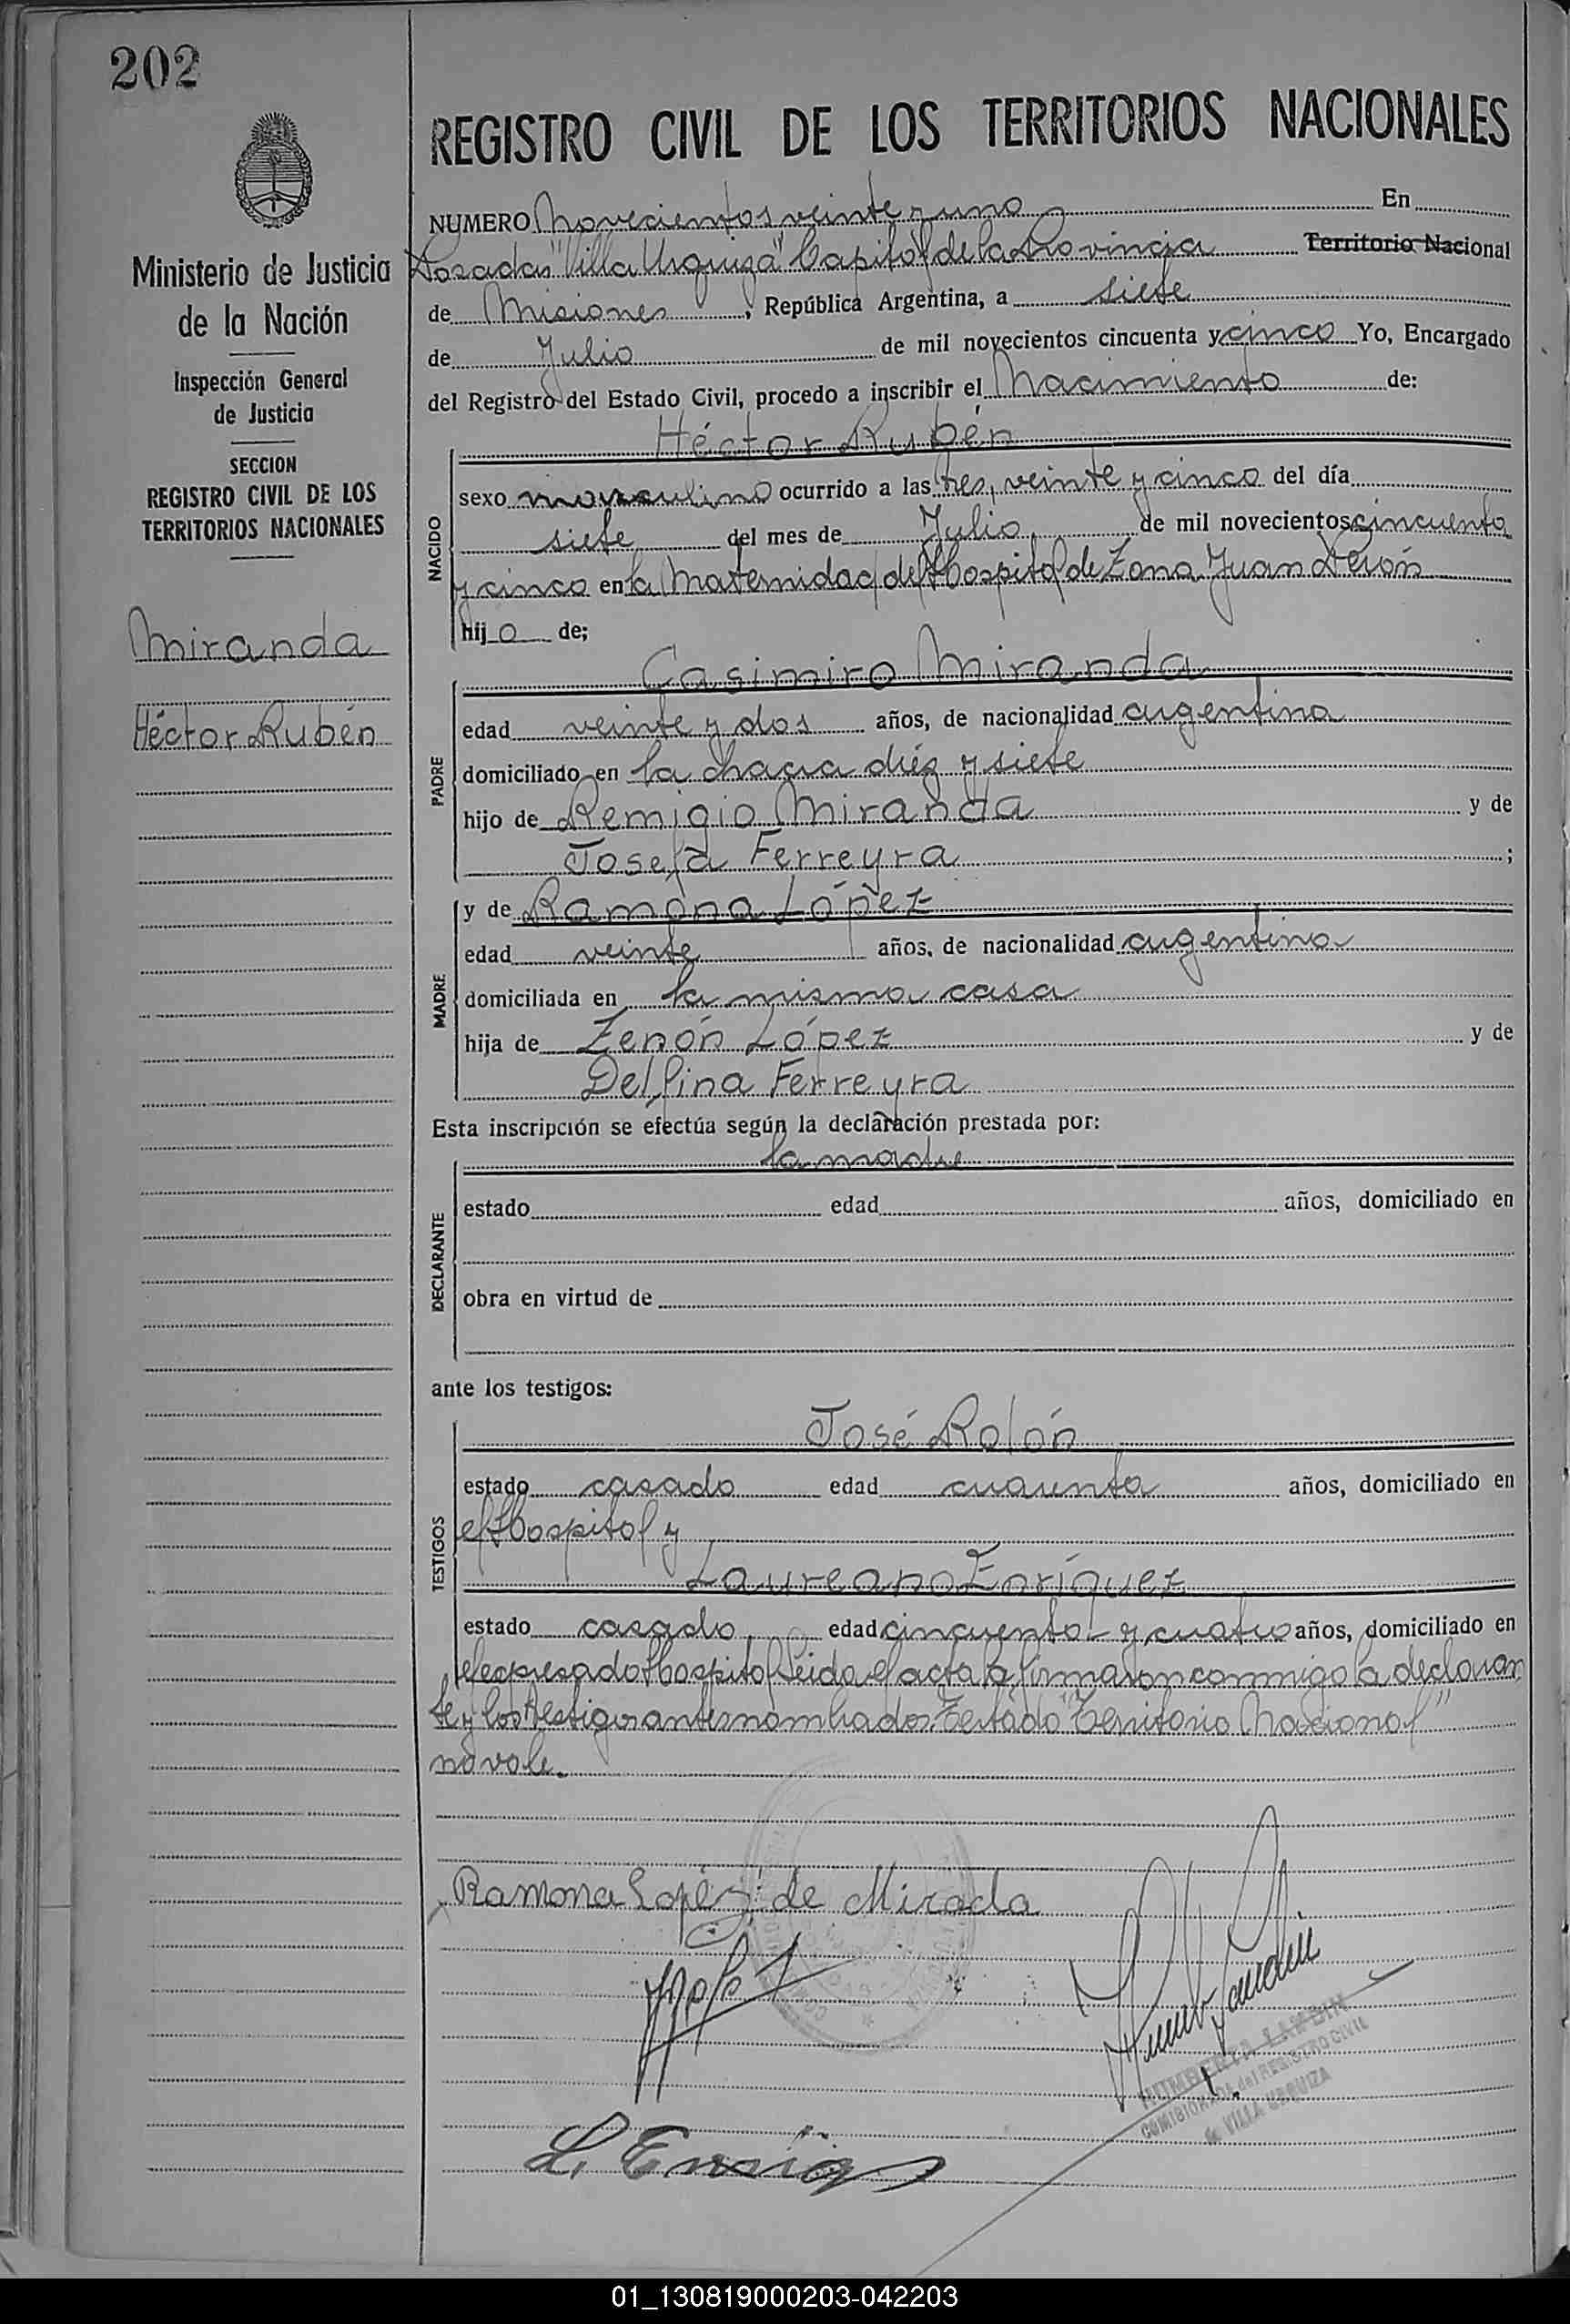 202
Ministerio de Justicia
de la Nación
Inspección General
de Justicia
SECCION
REGISTRO CIVIL DE LOS
TERRITORIOS NACIONALES
Miranda
Héctor Rubén
REGISTRO CIVIL DE LOS TERRITORIOS NACIONALES
NUMERO Novecientos veinte y uno En
Posadas "Villa Urquiza" Capital de la Provincia Territorio Nacional
de Misiones, República Argentina, a siete
de Julio de mil novecientos cincuenta y cinco Yo, Encargado
del Registro del Estado Civil, procedo a inscribir el Nacimiento de:
Héctor Rubén
NACIDO
sexo masculino ocurrido a las tres, veinte y cinco del día
siete del mes de Julio de mil novecientos cincuenta
y cinco en la Maternidad del Hospital de Zona Juan Perón
hijo de;
Casimiro Miranda
PADRE
edad veinte y dos años, de nacionalidad argentina
domiciliado en la chacra diéz y siete
hijo de Remigio Miranda y de
Josefa Ferreyra ;
MADRE
y de Ramona López
edad veinte años, de nacionalidad argentina
domiciliada en la misma casa
hija de Zenón López y de
Delfina Ferreyra
Esta inscripción se efectúa según la declaración prestada por:
la madre
DECLARANTE
estado edad años, domiciliado en
obra en virtud de
ante los testigos:
José Rolón
TESTIGOS
estado casado edad cuarenta años, domiciliado en
el Hospital y
Laureano Enríquez
estado casado edad cincuenta y cuatro años, domiciliado en
el expresado Hospital Leida el acta la firmaron conmigo la declaran
te y los testigos antes nombrados. Testado "Territorio Nacional"
no vale.
Ramona Lopéz de Mirada
L. Enriq
HUMBERTO LANDIN
COMISIONADO del REGISTRO CIVIL
VILLA URQUIZA
01_130819000203-042203